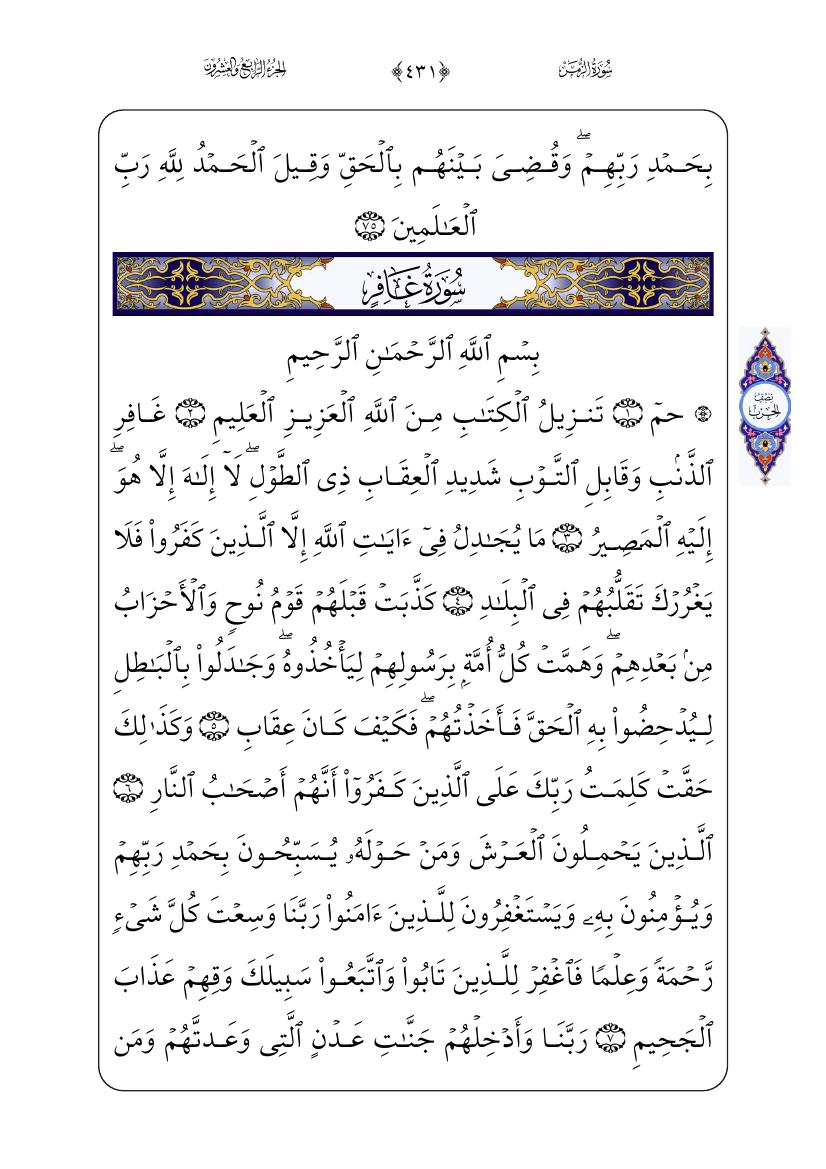 سُورَةُ الزُّمَرِ ﴿٤٣١﴾ الجُزْءُ الرَّابِعُ وَالعِشْرُونَ
بِحَمۡدِ رَبِّهِمۡۖ وَقُضِيَ بَيۡنَهُم بِٱلۡحَقِّ وَقِيلَ ٱلۡحَمۡدُ لِلَّهِ رَبِّ
ٱلۡعَٰلَمِينَ ٧٥
سُورَةُ غَافِرٍ
بِسۡمِ ٱللَّهِ ٱلرَّحۡمَٰنِ ٱلرَّحِيمِ
۞ حمٓ ١ تَنزِيلُ ٱلۡكِتَٰبِ مِنَ ٱللَّهِ ٱلۡعَزِيزِ ٱلۡعَلِيمِ ٢ غَافِرِ
نِصْفُ
الحِزْبِ
ٱلذَّنۢبِ وَقَابِلِ ٱلتَّوۡبِ شَدِيدِ ٱلۡعِقَابِ ذِي ٱلطَّوۡلِۖ لَآ إِلَٰهَ إِلَّا هُوَۖ
إِلَيۡهِ ٱلۡمَصِيرُ ٣ مَا يُجَٰدِلُ فِيٓ ءَايَٰتِ ٱللَّهِ إِلَّا ٱلَّذِينَ كَفَرُواْ فَلَا
يَغۡرُرۡكَ تَقَلُّبُهُمۡ فِي ٱلۡبِلَٰدِ ٤ كَذَّبَتۡ قَبۡلَهُمۡ قَوۡمُ نُوحٖ وَٱلۡأَحۡزَابُ
مِنۢ بَعۡدِهِمۡۖ وَهَمَّتۡ كُلُّ أُمَّةِۭ بِرَسُولِهِمۡ لِيَأۡخُذُوهُۖ وَجَٰدَلُواْ بِٱلۡبَٰطِلِ
لِيُدۡحِضُواْ بِهِ ٱلۡحَقَّ فَأَخَذۡتُهُمۡۖ فَكَيۡفَ كَانَ عِقَابِ ٥ وَكَذَٰلِكَ
حَقَّتۡ كَلِمَتُ رَبِّكَ عَلَى ٱلَّذِينَ كَفَرُوٓاْ أَنَّهُمۡ أَصۡحَٰبُ ٱلنَّارِ ٦
ٱلَّذِينَ يَحۡمِلُونَ ٱلۡعَرۡشَ وَمَنۡ حَوۡلَهُۥ يُسَبِّحُونَ بِحَمۡدِ رَبِّهِمۡ
وَيُؤۡمِنُونَ بِهِۦ وَيَسۡتَغۡفِرُونَ لِلَّذِينَ ءَامَنُواْ رَبَّنَا وَسِعۡتَ كُلَّ شَيۡءٖ
رَّحۡمَةٗ وَعِلۡمٗا فَٱغۡفِرۡ لِلَّذِينَ تَابُواْ وَٱتَّبَعُواْ سَبِيلَكَ وَقِهِمۡ عَذَابَ
ٱلۡجَحِيمِ ٧ رَبَّنَا وَأَدۡخِلۡهُمۡ جَنَّٰتِ عَدۡنٍ ٱلَّتِي وَعَدتَّهُمۡ وَمَن